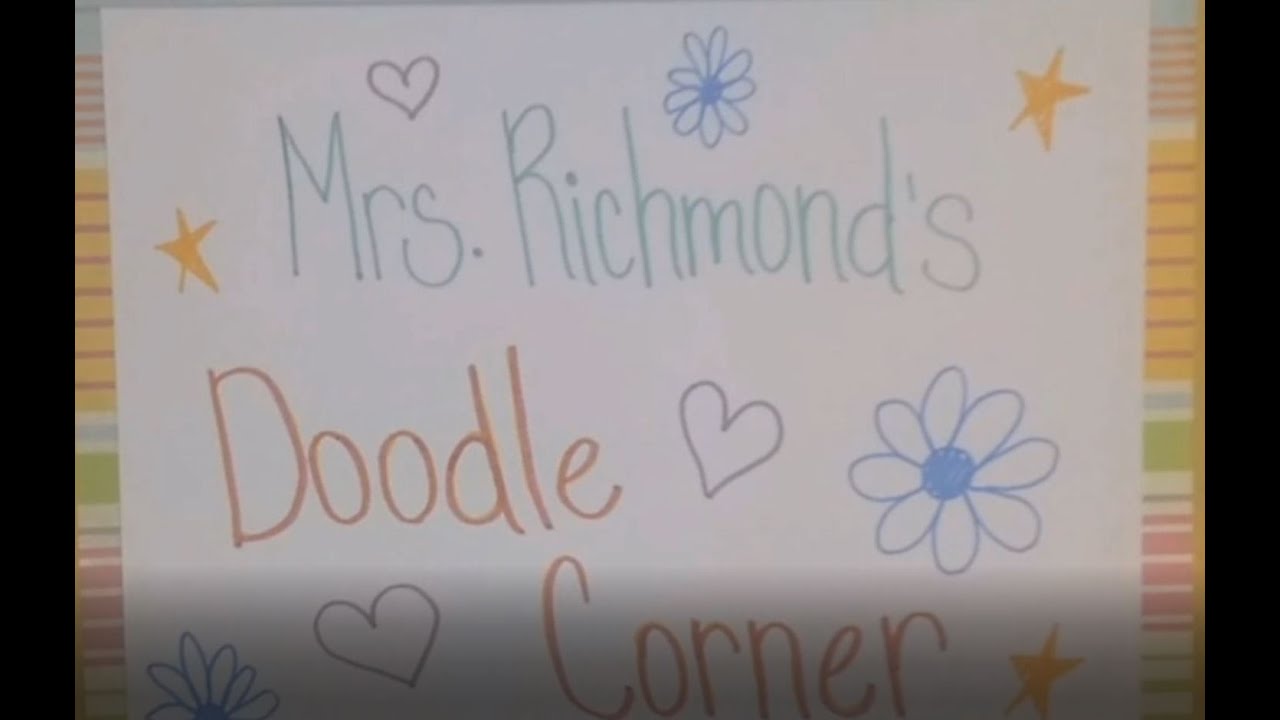 Mrs. Richmond's
Doodle
Corner